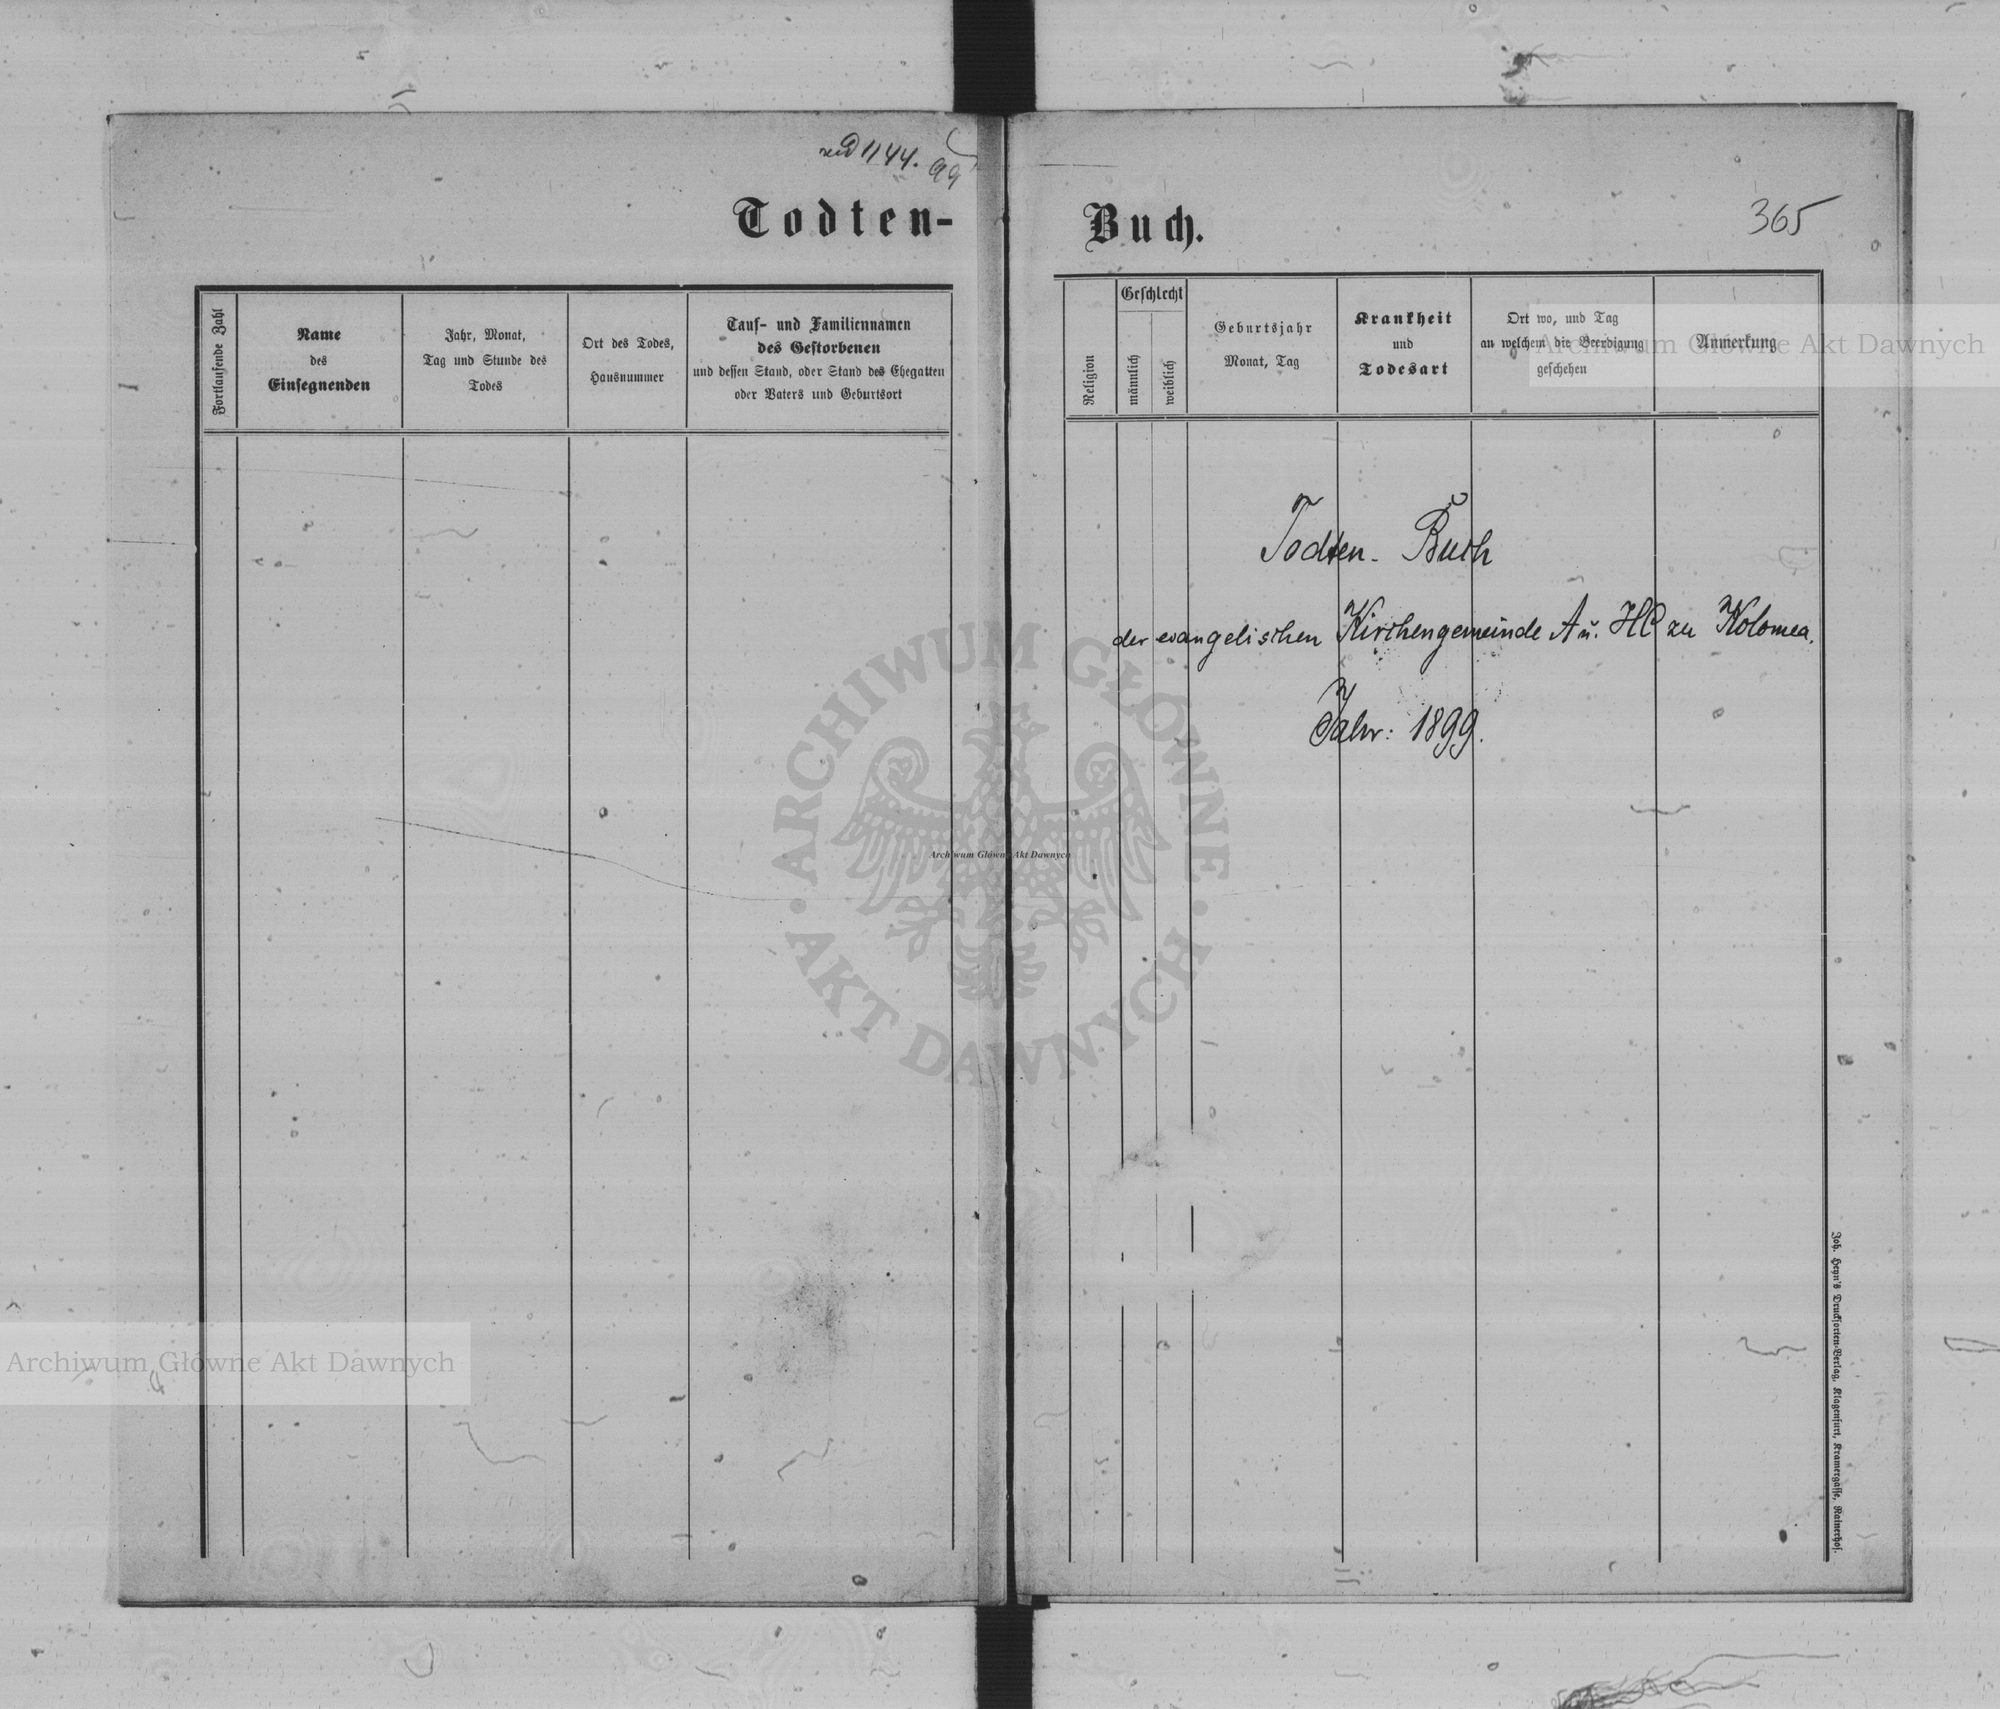 ad 1144.
99
Todten-
Buch.
365
Fortlaufende Zahl
Name
des
Einsegnenden
Jahr, Monat,
Tag und Stunde des
Todes
Ort des Todes,
Hausnummer
Tauf- und Familiennamen
des Gestorbenen
und dessen Stand, oder Stand des Ehegatten
oder Vaters und Geburtsort
Religion
Geschlecht
männlich
weiblich
Geburtsjahr
Monat, Tag
Krankheit
und
Todesart
Ort wo, und Tag
an welchem die Beerdigung
geschehen
Anmerkung
Archiwum Główne Akt Dawnych
Todten-Buch
der evangelischen Kirchengemeinde A u. HC zu Kolomea.
Jahr: 1899.
ARCHIWUM GŁÓWNE
Archiwum Główne Akt Dawnych
AKT DAWNYCH
Joh. Heyn's Drucksorten-Verlag, Klagenfurt, Kramergasse, Rainerhof.
Archiwum Główne Akt Dawnych